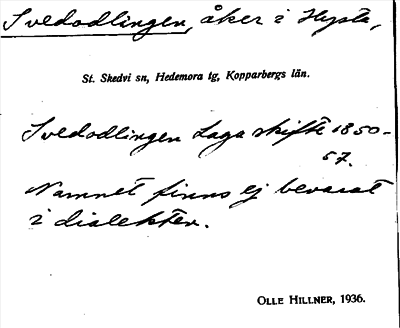 Svedodlingen, åker i Hysta,
St. Skedvi sn, Hedemora tg, Kopparbergs län.
Svedodlingen Laga skifte 1850-
57.
Namnet finns ej bevarat
i dialekten.
OLLE HILLNER, 1936.